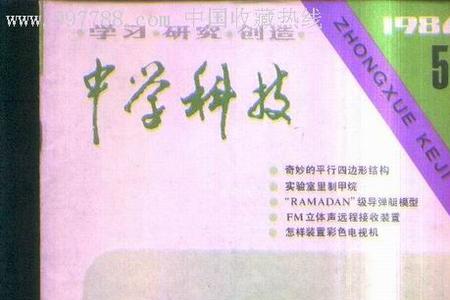 www.997788.com 中国收藏热线
·学习·研究·创造·
1984
中学科技
ZHONGXUE KEJI
5
奇妙的平行四边形结构
实验室里制甲烷
“RAMADAN”级导弹艇模型
FM立体声远程接收装置
怎样装置彩色电视机